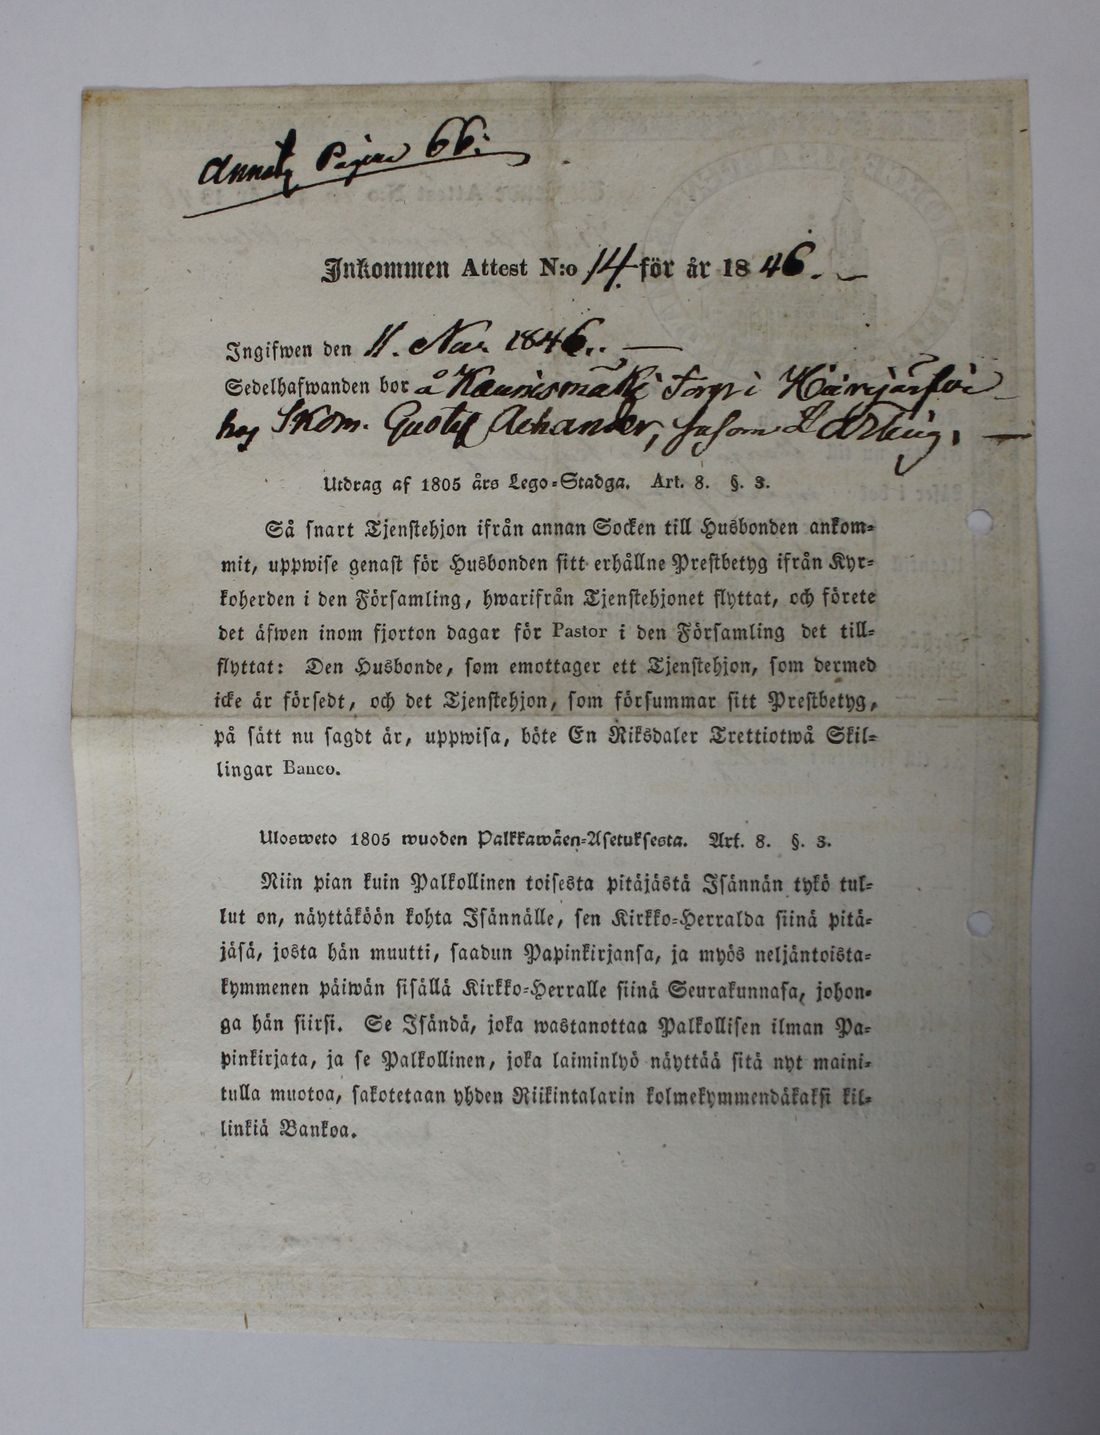 Pagina 66.
Inkommen Attest N:o 14 för år 1846.
Ingifwen den 11. Nov. 1846.
Sedelhafwanden bor å Kaunismäki Torp i Härjänsilo
hos Skom. Gustaf Achander, såsom Lärling.
Utdrag af 1805 års Lego-Stadga. Art. 8. §. 3.
Så snart Tjenstehjon ifrån annan Socken till Husbonden ankom-
mit, uppwise genast för Husbonden sitt erhållne Prestbetyg ifrån Kyr-
koherden i den Församling, hwarifrån Tjenstehjonet flyttat, och förete
det äfwen inom fjorton dagar för Pastor i den Församling det till-
flyttat: Den Husbonde, som emottager ett Tjenstehjon, som dermed
icke är försedt, och det Tjenstehjon, som försummar sitt Prestbetyg,
på sätt nu sagdt är, uppwisa, böte En Riksdaler Trettiotwå Skil-
lingar Banco.
Ulosweto 1805 wuoden Palkkawäen-Asetuksesta. Art. 8. §. 3.
Niin pian kuin Palkollinen toisesta pitäjästä Isännän tykö tul-
lut on, näyttäköön kohta Isännälle, sen Kirkko-Herralda siinä pitä-
jäsä, josta hän muutti, saadun Papinkirjansa, ja myös neljäntoista-
kymmenen päiwän sisällä Kirkko-Herralle siinä Seurakunnasa, johon-
ga hän siirsi. Se Isändä, joka wastanottaa Palkollisen ilman Pa-
pinkirjata, ja se Palkollinen, joka laiminlyö näyttää sitä nyt maini-
tulla muotoa, sakotetaan yhden Riikintalarin kolmekymmendäkaksi kil-
linkiä Bankoa.